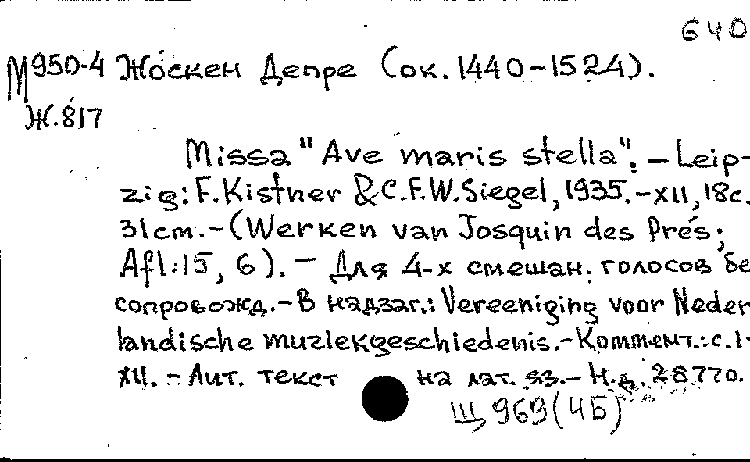 640
М950-4 Жоскен Депре (ок. 1440-1524).
Ж.817
Missa "Ave maris stella". - Leip-
zig: F. Kistner & C.F.W. Siegel, 1935. - XII, 18с.
31cm. - (Werken van Josquin des Prés;
Afl: 15, 6). - Для 4-х смешан. голосов бе
сопровожд. - В надзаг.: Vereeniging voor Neder
landische muziekgeschiedenis. - Коммент.: с. I-
XII. - Лит. текст на лат. яз. - Н.д. 28770.
Щ 969 (4Б)